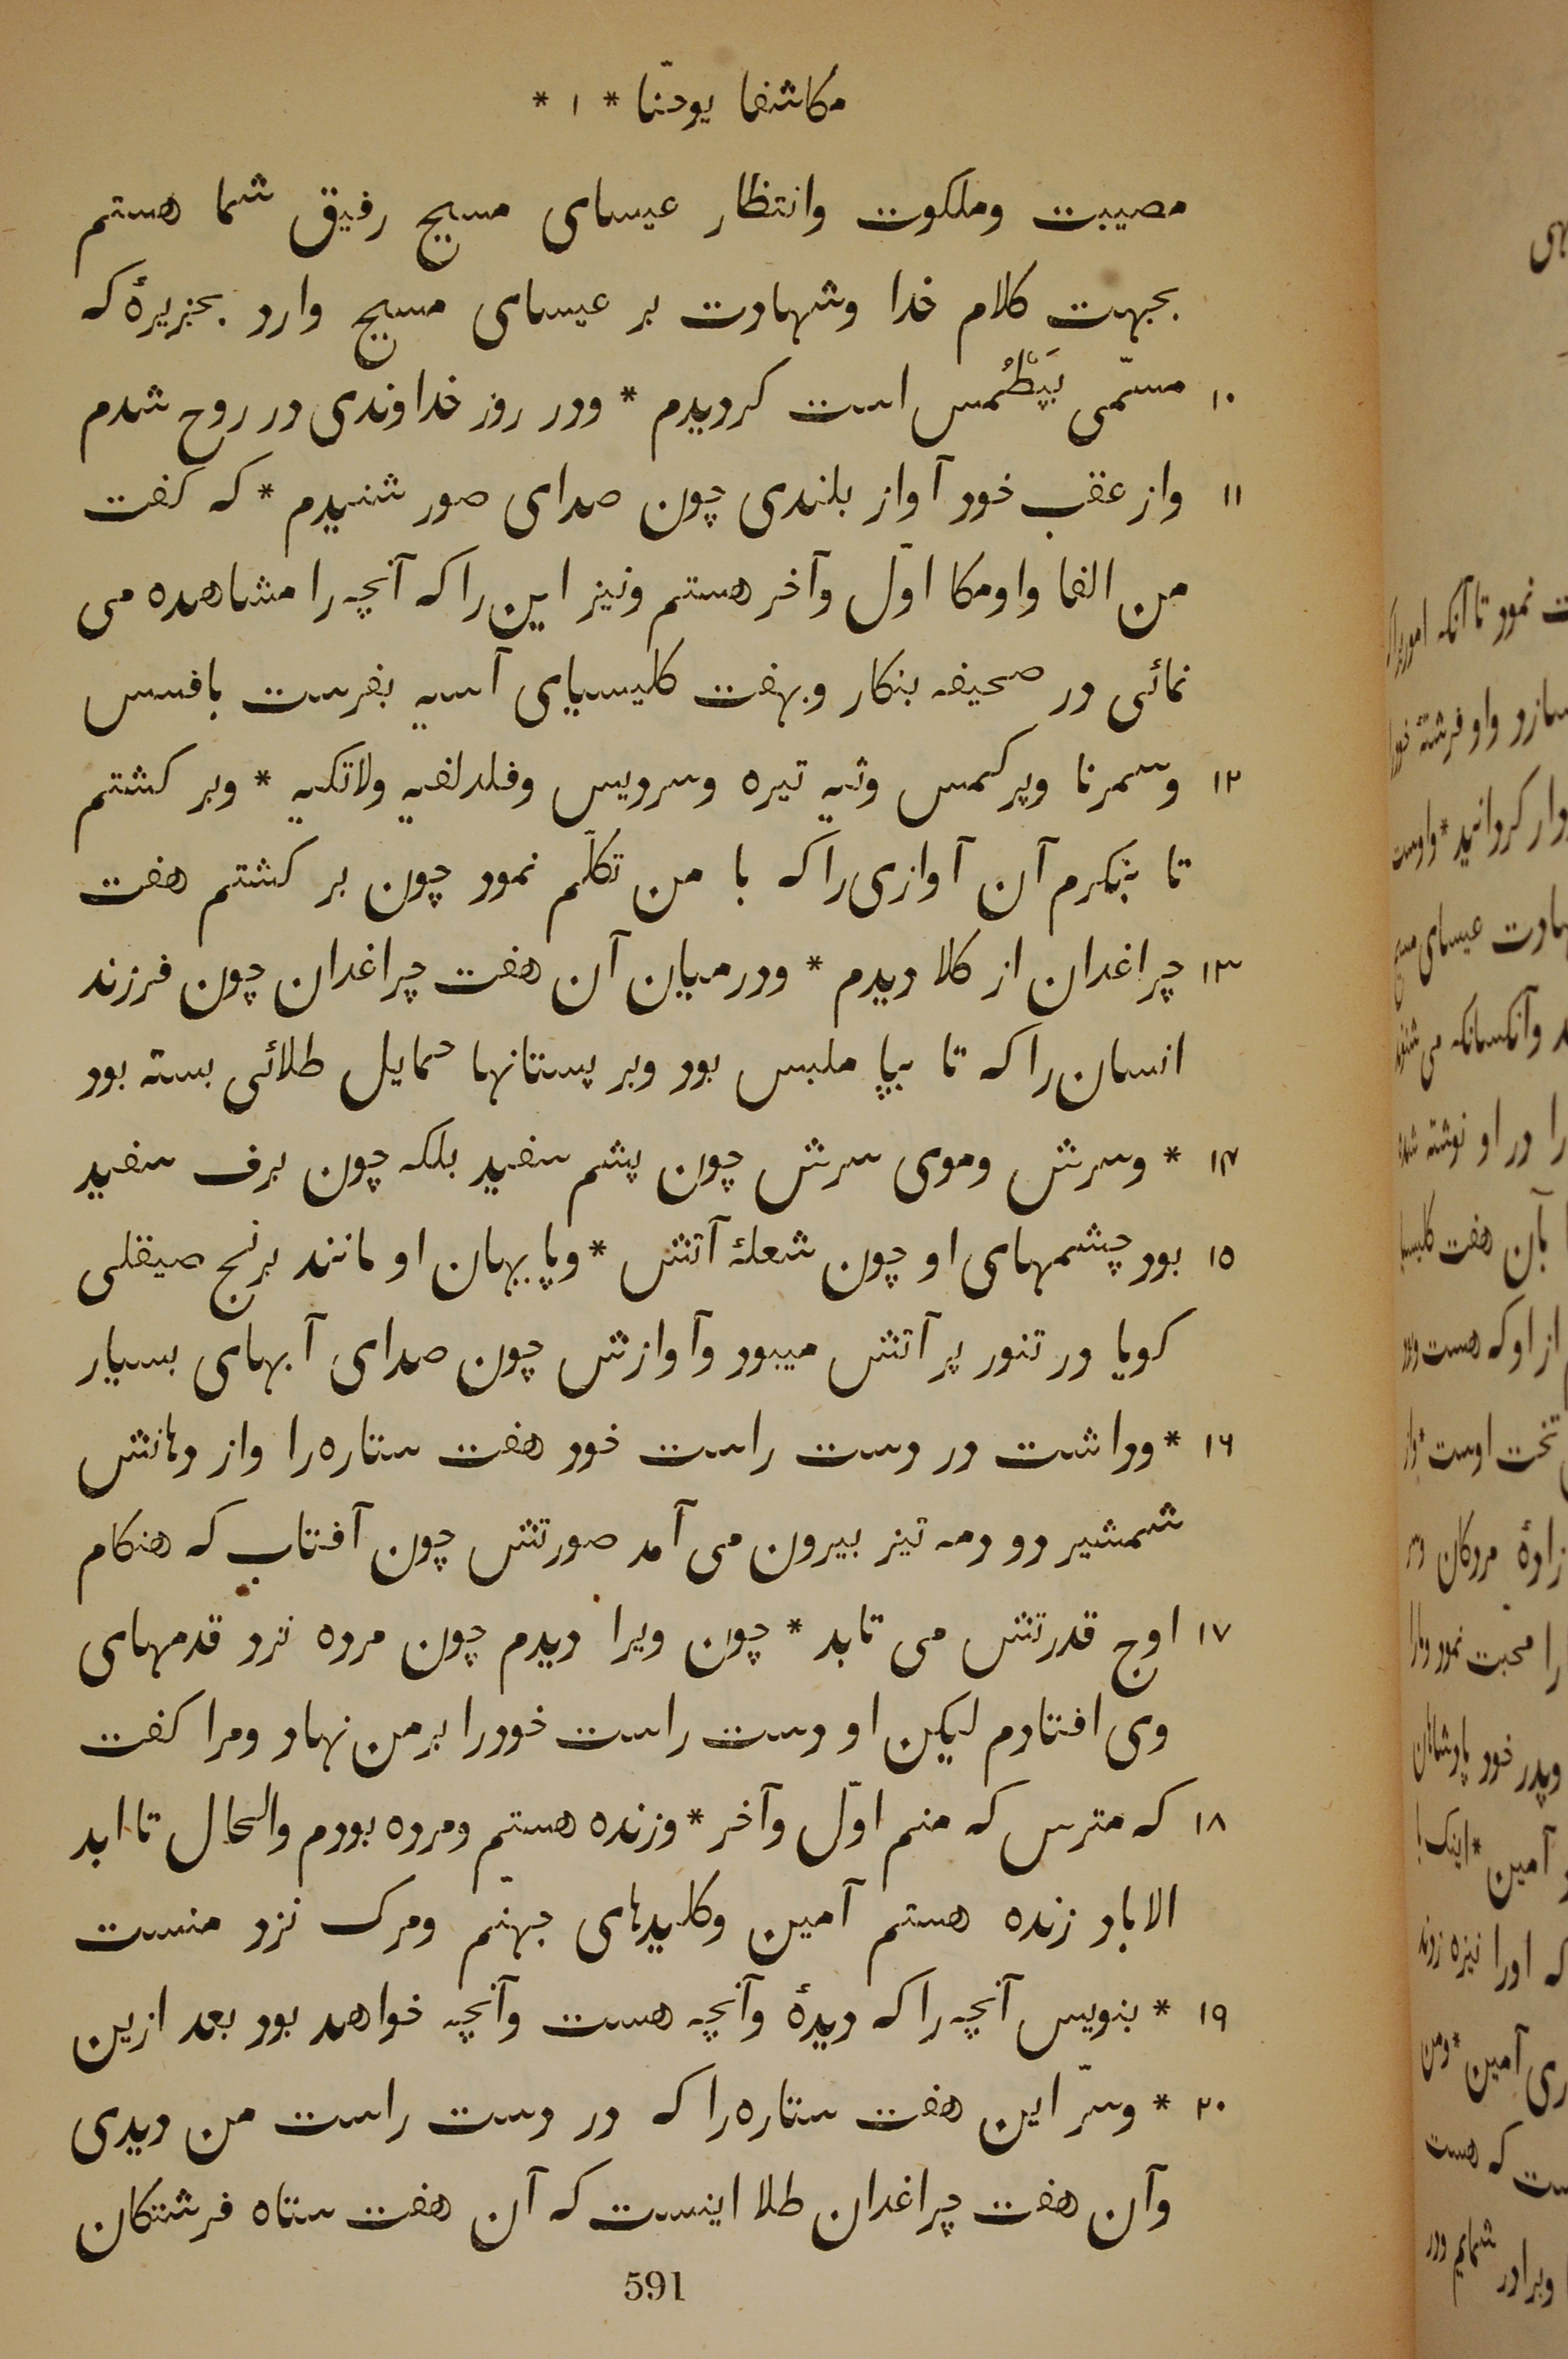 مکاشفا یوحنّا * ۱ *
مصیبت وملکوت وانتظار عیسای مسیح رفیق شما هستم
بجهت کلام خدا وشهادت بر عیسای مسیح وارد بجزیرهٔ که
۱۰ مسمّی بَپَطْمُس است کردیدم * ودر روز خداوندی در روح شدم
۱۱ واز عقب خود آواز بلندی چون صدای صور شنیدم * که کفت
من الفا واومکا اوّل وآخر هستم ونیز این را که آنچه را مشاهده می
نمائی در صحیفه بنکار وبهفت کلیسیای آسیه بفرست بافسس
۱۲ وسمرنا وپرکمس وثیه تیره وسردیس وفلدلفیه ولاتکیه * وبر کشتم
تا بنکرم آن آوازی را که با من تکلّم نمود چون بر کشتم هفت
۱۳ چراغدان از کلا دیدم * ودر میان آن هفت چراغدان چون فرزند
انسان را که تا بپا ملبس بود وبر پستانها حمایل طلائی بسته بود
۱۴ * وسرش وموی سرش چون پشم سفید بلکه چون برف سفید
۱۵ بود چشمهای او چون شعلهٔ آتش * وپاییهان او مانند برنج صیقلی
کویا در تنور پر آتش میبود وآوازش چون صدای آبهای بسیار
۱۶ * وداشت در دست راست خود هفت ستاره را واز دهانش
شمشیر دو دمه تیز بیرون می آمد صورتش چون آفتاب که هنکام
۱۷ اوج قدرتش می تابد * چون ویرا دیدم چون مرده نزد قدمهای
وی افتادم لیکن او دست راست خودرا بر من نهاد ومرا کفت
۱۸ که مترس که منم اوّل وآخر * وزنده هستم ومرده بودم والحال تا ابد
الاباد زنده هستم آمین وکلیدهای جهنّم ومرک نزد منست
۱۹ * بنویس آنچه را که دیدهٔ وآنچه هست وآنچه خواهد بود بعد ازین
۲۰ * وسرّ این هفت ستاره را که در دست راست من دیدی
وآن هفت چراغدان طلا اینست که آن هفت ستاه فرشتکان
591